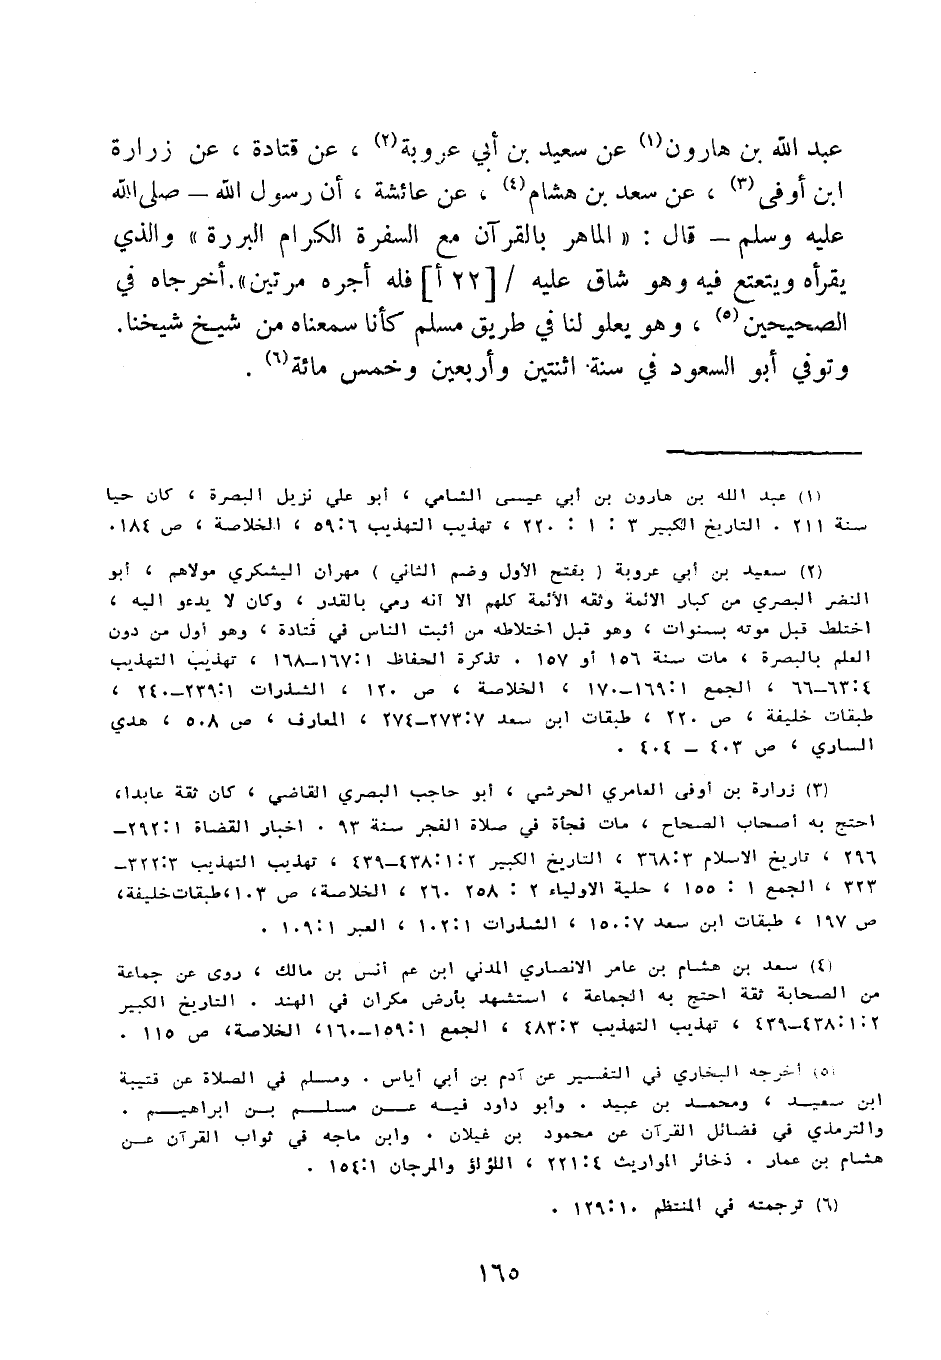 عبد الله بن هارون(١) عن سعيد بن أبي عروبة(٢) ، عن قتادة ، عن زرارة
ابن أوفى(٣) ، عن سعد بن هشام(٤) ، عن عائشة ، أن رسول الله — صلى الله
عليه وسلم — قال : « الماهر بالقرآن مع السفرة الكرام البررة » والذي
يقرأه ويتعتع فيه وهو شاق عليه / [٢٢ أ] فله أجره مرتين». أخرجاه في
الصحيحين(٥) ، وهو يعلو لنا في طريق مسلم كأنا سمعناه من شيخ شيخنا.
وتوفي أبو السعود في سنة اثنتين وأربعين وخمس مائة(٦) .
(١) عبد الله بن هارون بن أبي عيسى الشامي ، أبو علي نزيل البصرة ، كان حيا
سنة ٢١١ . التاريخ الكبير ٣ : ١ : ٢٢٠ ، تهذيب التهذيب ٥٩:٦ ، الخلاصة ، ص ١٨٤.
(٢) سعيد بن أبي عروبة ( بفتح الأول وضم الثاني ) مهران اليشكري مولاهم ، أبو
النضر البصري من كبار الائمة وثقه الأئمة كلهم الا أنه رمي بالقدر ، وكان لا يدعو اليه ،
اختلط قبل موته بسنوات ، وهو قبل اختلاطه من أثبت الناس في قتادة ، وهو أول من دون
العلم بالبصرة ، مات سنة ١٥٦ أو ١٥٧ . تذكرة الحفاظ ١٦٧:١–١٦٨ ، تهذيب التهذيب
٦٣:٤–٦٦ ، الجمع ١٦٩:١–١٧٠ ، الخلاصة ، ص ١٢٠ ، الشذرات ٢٣٩:١–٢٤٠ ،
طبقات خليفة ، ص ٢٢٠ ، طبقات ابن سعد ٢٧٣:٧–٢٧٤ ، المعارف ، ص ٥٠٨ ، هدي
الساري ، ص ٤٠٣ – ٤٠٤ .
(٣) زرارة بن أوفى العامري الحرشي ، أبو حاجب البصري القاضي ، كان ثقة عابدا،
احتج به أصحاب الصحاح ، مات فجأة في صلاة الفجر سنة ٩٣ . اخبار القضاة ٢٩٢:١–
٢٩٦ ، تاريخ الاسلام ٣٦٨:٣ ، التاريخ الكبير ٤٣٨:١:٢–٤٣٩ ، تهذيب التهذيب ٣٢٢:٣–
٣٢٣ ، الجمع ١ : ١٥٥ ، حلية الاولياء ٢ : ٢٥٨ ٢٦٠ ، الخلاصة، ص ١٠٣،طبقات خليفة،
ص ١٩٧ ، طبقات ابن سعد ١٥٠:٧ ، الشذرات ١٠٢:١ ، العبر ١٠٩:١ .
(٤) سعد بن هشام بن عامر الانصاري المدني ابن عم أنس بن مالك ، روى عن جماعة
من الصحابة ثقة احتج به الجماعة ، استشهد بأرض مكران في الهند . التاريخ الكبير
٤٣٨:١:٢–٤٣٩ ، تهذيب التهذيب ٤٨٣:٣ ، الجمع ١٥٩:١–١٦٠، الخلاصة، ص ١١٥ .
(٥) أخرجه البخاري في التفسير عن آدم بن أبي أياس . ومسلم في الصلاة عن قتيبة
ابن سعيد ، ومحمد بن عبيد . وأبو داود فيه عن مسلم بن ابراهيم .
والترمذي في فضائل القرآن عن محمود بن غيلان . وابن ماجه في ثواب القرآن عن
هشام بن عمار . ذخائر المواريث ٢٢١:٤ ، اللؤلؤ والمرجان ١٥٤:١ .
(٦) ترجمته في المنتظم ١٢٩:١٠ .
١٦٥